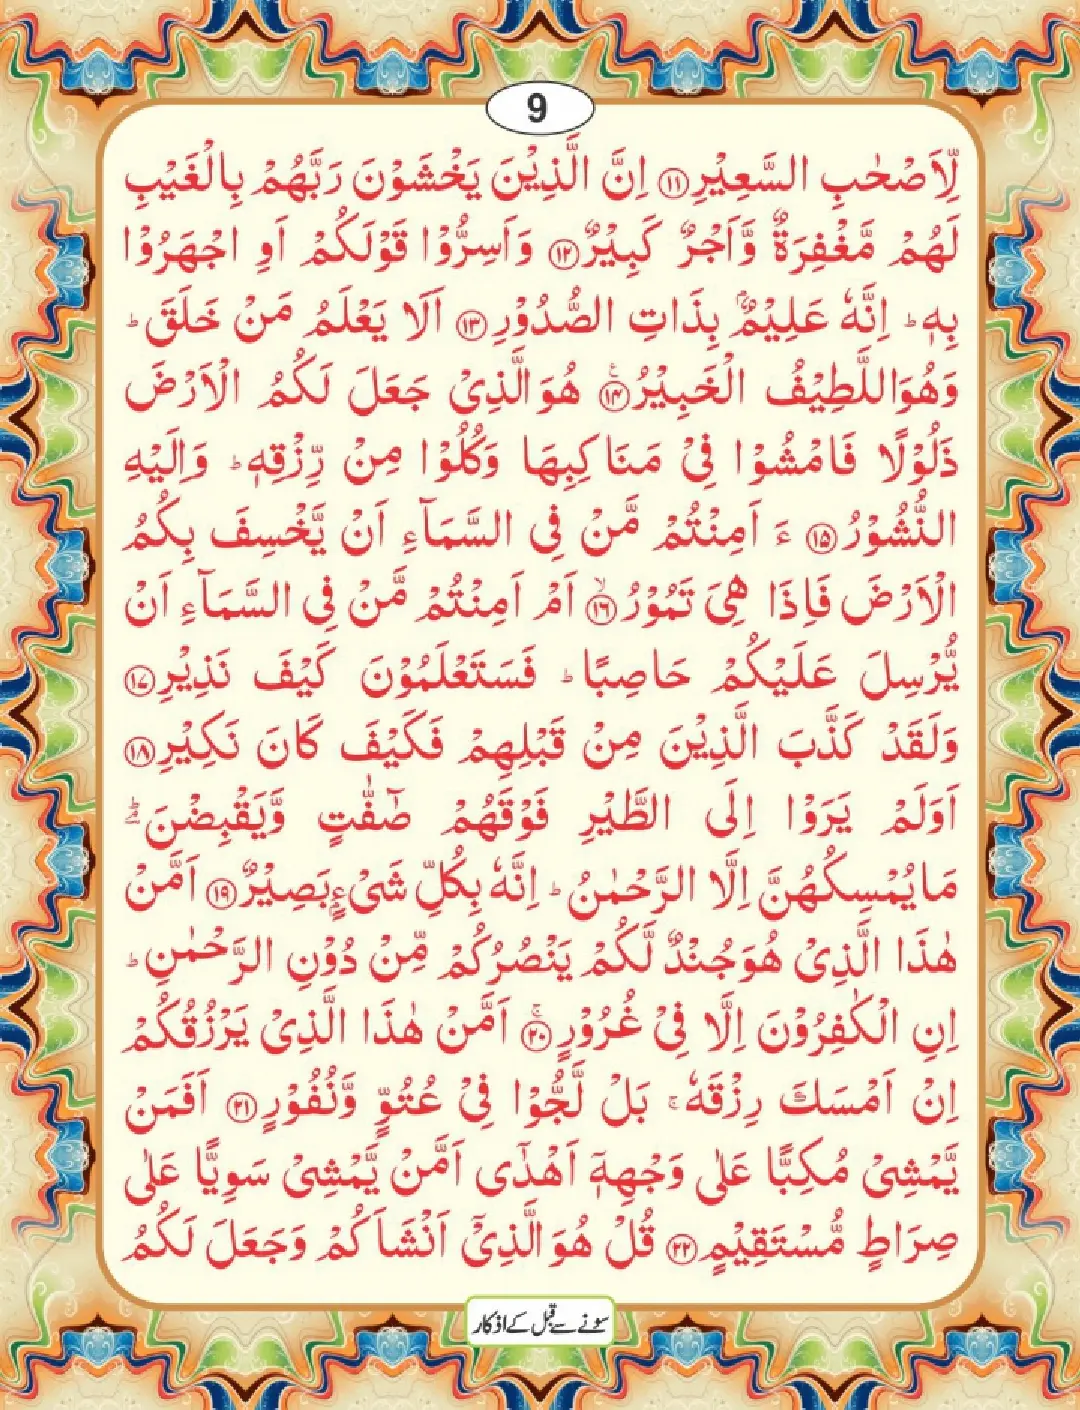 9
لِّاَصْحٰبِ السَّعِيْرِ ۝۱۱ اِنَّ الَّذِيْنَ يَخْشَوْنَ رَبَّهُمْ بِالْغَيْبِ
لَهُمْ مَّغْفِرَةٌ وَّاَجْرٌ كَبِيْرٌ ۝۱۲ وَاَسِرُّوْا قَوْلَكُمْ اَوِ اجْهَرُوْا
بِهٖ ؕ اِنَّهٗ عَلِيْمٌۢ بِذَاتِ الصُّدُوْرِ ۝۱۳ اَلَا يَعْلَمُ مَنْ خَلَقَ ؕ
وَهُوَ اللَّطِيْفُ الْخَبِيْرُ ۝۱۴ۧ هُوَ الَّذِیْ جَعَلَ لَكُمُ الْاَرْضَ
ذَلُوْلًا فَامْشُوْا فِیْ مَنَاكِبِهَا وَكُلُوْا مِنْ رِّزْقِهٖ ؕ وَاِلَيْهِ
النُّشُوْرُ ۝۱۵ ءَ اَمِنْتُمْ مَّنْ فِی السَّمَآءِ اَنْ يَّخْسِفَ بِكُمُ
الْاَرْضَ فَاِذَا هِیَ تَمُوْرُ ۝۱۶ۙ اَمْ اَمِنْتُمْ مَّنْ فِی السَّمَآءِ اَنْ
يُّرْسِلَ عَلَيْكُمْ حَاصِبًا ؕ فَسَتَعْلَمُوْنَ كَيْفَ نَذِيْرِ ۝۱۷
وَلَقَدْ كَذَّبَ الَّذِيْنَ مِنْ قَبْلِهِمْ فَكَيْفَ كَانَ نَكِيْرِ ۝۱۸
اَوَلَمْ يَرَوْا اِلَی الطَّيْرِ فَوْقَهُمْ صٰٓفّٰتٍ وَّيَقْبِضْنَ ؔؕ
مَا يُمْسِكُهُنَّ اِلَّا الرَّحْمٰنُ ؕ اِنَّهٗ بِكُلِّ شَیْءٍۭ بَصِيْرٌ ۝۱۹ اَمَّنْ
هٰذَا الَّذِیْ هُوَ جُنْدٌ لَّكُمْ يَنْصُرُكُمْ مِّنْ دُوْنِ الرَّحْمٰنِ ؕ
اِنِ الْكٰفِرُوْنَ اِلَّا فِیْ غُرُوْرٍ ۝۲۰ۚ اَمَّنْ هٰذَا الَّذِیْ يَرْزُقُكُمْ
اِنْ اَمْسَكَ رِزْقَهٗ ۚ بَلْ لَّجُّوْا فِیْ عُتُوٍّ وَّنُفُوْرٍ ۝۲۱ اَفَمَنْ
يَّمْشِیْ مُكِبًّا عَلٰی وَجْهِهٖۤ اَهْدٰۤی اَمَّنْ يَّمْشِیْ سَوِيًّا عَلٰی
صِرَاطٍ مُّسْتَقِيْمٍ ۝۲۲ قُلْ هُوَ الَّذِیْۤ اَنْشَاَكُمْ وَجَعَلَ لَكُمُ
سونے سے قبل کے اذکار